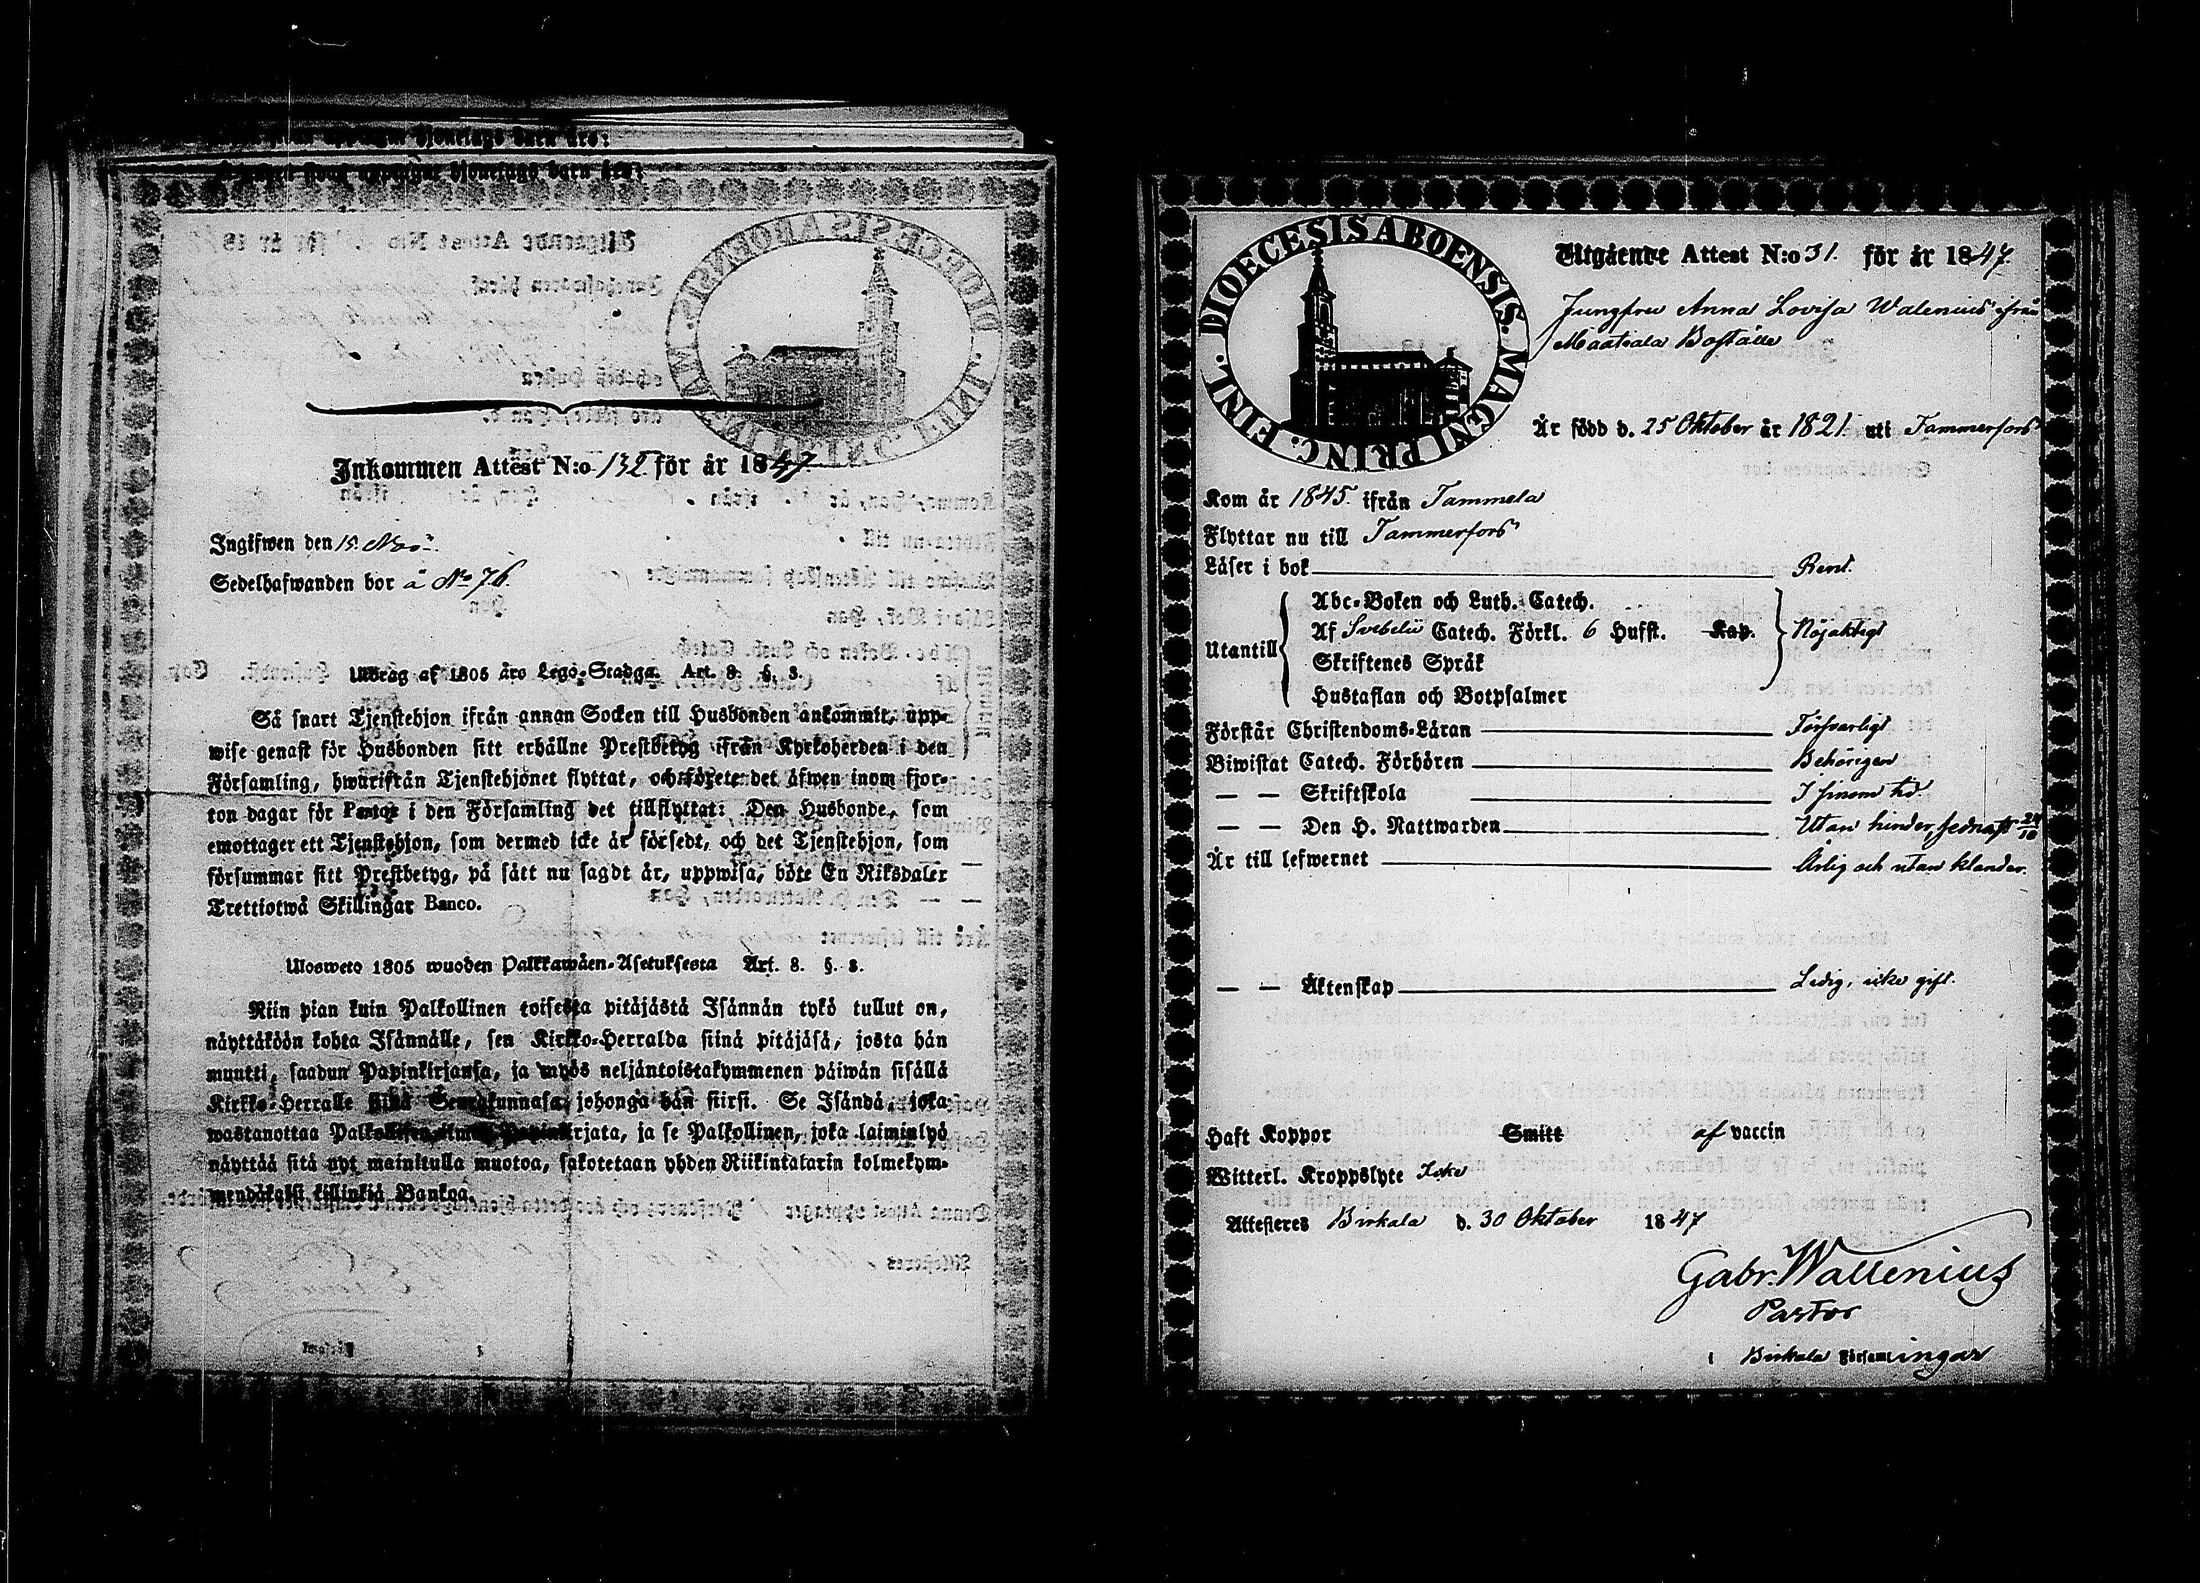 Inkommen Attest N:o 132 för år 1847
Ingifwen den 15. Nov:
Sedelhafwanden bor å No 76.
Utdrag af 1805 års Lego-Stadga. Art. 8. §. 3.
Så snart Tjenstehjon ifrån annan Socken till Husbonden ankommit, upp-
wise genast för Husbonden sitt erhållne Prestbetyg ifrån Kyrkoherden i den
Församling, hwarifrån Tjenstehjonet flyttat, och förete det äfwen inom fjor-
ton dagar för Pastor i den Församling det tillflyttat: Den Husbonde, som
emottager ett Tjenstehjon, som dermed icke är försedt, och det Tjenstehjon, som
försummar sitt Prestbetyg, på sätt nu sagdt är, uppwisa, böte En Riksdaler
Trettiotwå Skillingar Banco.
Ulosweto 1805 wuoden Palkkawäen-Asetuksesta Art. 8. §. 3.
Niin pian kuin Palkollinen toisesta pitäjästä Isännän tykö tullut on,
näyttäköön kohta Isännälle, sen Kirkko-Herralda siinä pitäjäsä, josta hän
muutti, saadun Papinkirjansa, ja myös neljäntoistakymmenen päiwän sisällä
Kirkko-Herralle siinä Seurakunnasa johonga hän siirsi. Se Isändä, joka
wastanottaa Palkollisen ilman Papinkirjata, ja se Palkollinen, joka laiminlyö
näyttää sitä nyt mainitulla muotoa, sakotetaan yhden Riikintalarin kolmekym-
mendäkaksi killinkiä Bankoa.
DIOECESIS ABOENSIS. MAGNI PRINC. FINL.
Utgående Attest N:o 31. för år 1847.
Jungfru Anna Lovisa Walenius ifrån
Maatiala Boställe
Är född d. 25 Oktober år 1821. uti Tammerfors
Kom år 1845. ifrån Tammela
Flyttar nu till Tammerfors
Läser i bok Rent.
Abc-Boken och Luth. Catech.
Utantill Af Svebelii Catech. Förkl. 6 Hufst. Kap. Nöjaktigt
Skriftenes Språk
Hustaflan och Botpsalmer
Förstår Christendoms-Läran Försvarligt
Biwistat Catech. Förhören Behörigen
— — Skriftskola I sinom tid.
— — Den H. Nattwarden Utan hinder, sednast 24/10
Är till lefwernet Ärlig och utan klander.
— — Äktenskap Ledig, icke gift.
Haft Koppor Smitt af vaccin
Witterl. Kroppslyte Icke
Attesteres Birkala d. 30 Oktober 1847
Gabr. Wallenius
Pastor
i Birkala Församlingar